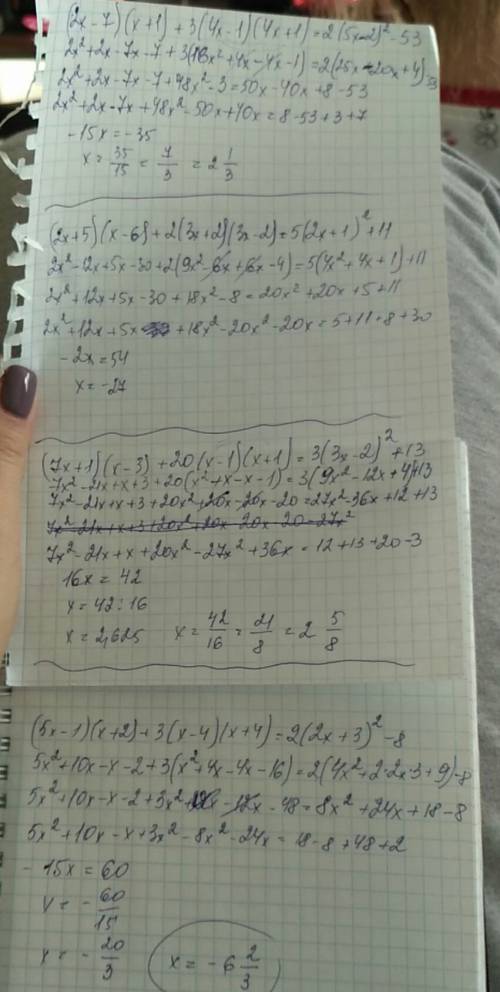 (2x-7)(x+1)+3(4x-1)(4x+1)=2(5x-2)²-53
2x²+2x-7x-7+3(16x²+4x-4x-1)=2(25x-20x+4)-53
2x²+2x-7x-7+48x²-3=50x-40x+8-53
2x²+2x-7x+48x²-50x+40x=8-53+3+7
-15x=-35
x=35/15=7/3=2 1/3
(2x+5)(x-6)+2(3x+2)(3x-2)=5(2x+1)²+11
2x²-12x+5x-30+2(9x²-6x+6x-4)=5(4x²+4x+1)+11
2x²+12x+5x-30+18x²-8=20x²+20x+5+11
2x²+12x+5x+18x²-20x²-20x=5+11+8+30
-2x=54
x=-27
(7x+1)(x-3)+20(x-1)(x+1)=3(3x-2)²+13
7x²-21x+x+3+20(x²+x-x-1)=3(9x²-12x+4)+13
7x²-21x+x+3+20x²+20x-20x-20=27x²-36x+12+13
7x²-21x+x+3+20x²+20x-20x-20=27x²
7x²-21x+x+20x²-27x²+36x=12+13+20-3
16x=42
x=42:16
x=2,625 x=42/16=21/8=2 5/8
(5x-1)(x+2)+3(x-4)(x+4)=2(2x+3)²-8
5x²+10x-x-2+3(x²+4x-4x-16)=2(4x²+2·2x·3+9)-8
5x²+10x-x-2+3x²+12x-12x-48=8x²+24x+18-8
5x²+10x-x+3x²-8x²-24x=18-8+48+2
-15x=60
x=-60/15
x=-20/3 x=-6 2/3